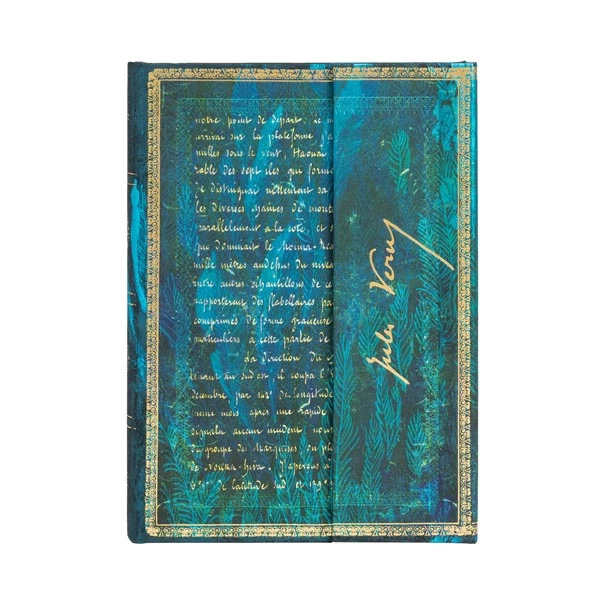 notre point de départ. Le m
arrivai sur la plateforme j'a
milles sous le vent, Haouaï
rable des sept iles que forme
Je distinguai nettement sa
les diverses chaînes de mont
parallèlement a la côte, et s
que dominait le Mouna-Rea
mille mètres audessus du nivea
entre autres échantillons de ce
rapportèrent des flabellaires pa
comprimés de forme gracieuse
particuliers à cette partie de
La direction du
tenait au sud est il coupa l'
décembre par 142° de longitude
même mois après une rapide
signala aucun incident nous
du groupe des Marquises ou pl
de Nouka-hiva. J'aperçus à
de latitude sud et 139°
Jules Verne